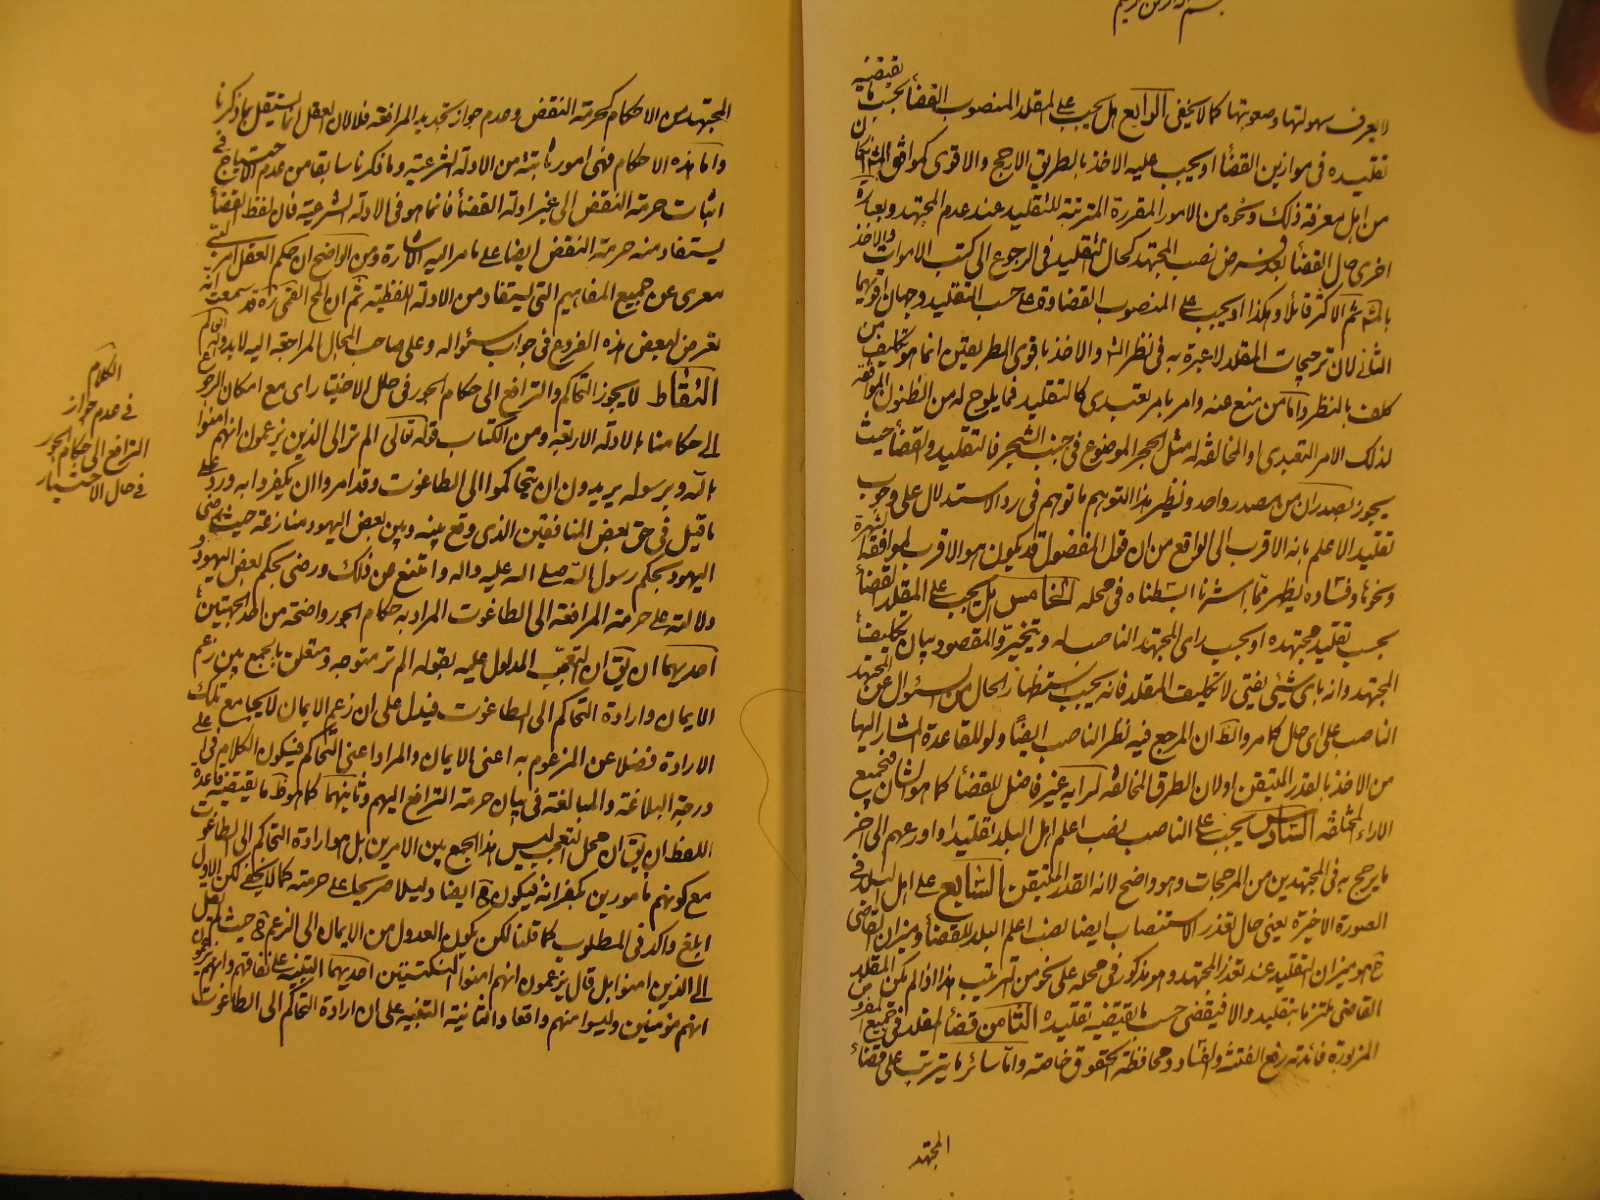 بسم الله الرحمن الرحيم
لا يعرف سهولتها وصعوبتها كما لا يخفى الرابع هل يجب على المقلد المنصوب القضأ بحسب ما يقتضيه
تقليده في موازين القضأ او يجب عليه الاخذ بالطريق الارجح والاقوى كموافق
من اهل معرفة ذلك ونحوه من الامور المقررة المترتبة للتقليد عند عدم المجتهد وبعبارة
اخرى حال القضأ بعد فرض نصب المجتهد كحال التقليد في الرجوع الى كتب الاموات والاخذ
ثم الاكثر قائلا وهكذا او يجب على المنصوب القضا وقد على حسب التقليد وجهان اقويهما
الثاني لان ترجيحات المقلد لا عبرة به في نظر والاخذ باقوى الطريقين انما هو تكليف من
كلف بالنظر واما من منع عنه وامر بامر تعبدي كالتقليد فما يلوح له من الظنون الموافقة
لذلك الامر التعبدى او المخالفة له مثل الحجر الموضوع في جنب الشجر فالتقليد والقضأ حيث
يجوز يصدران من مصدر واحد ونظير هذا التوهم ما توهم في رد الاستدلال على وجوب
تقليد الاعلم بانه الاقرب الى الواقع من ان قول المفضول قد يكون هو الاقرب لموافقة الشهرة
ونحوها وفساده يظهر مما اشرنا في محله الخامس هل يجب على المقلد القضأ
بحسب تقليد مجتهده او بحسب راى المجتهد الناصب له ويتخير والمقصود بيان تكليف
المجتهد وانه باى شيئ يفتى لا تكليف المقلد فانه يجب استظهار الحال من السؤال عن المجتهد
الناصب على اى حال كما مر والظ ان المرجع فيه نظر الناصب ايضا ولو للقاعدة المشار اليها
من الاخذ بالقدر المتيقن او لان الطرق المخالفة لرايه غير فاصل للقضأ كما هو الشان في جميع
الاراء المختلفة السادس يجب على الناصب نصب اعلم اهل البلد تقليدا او اورعهم الى اخر
ما يرجح به في المجتهدين من المرجحات وهو واضح لانه القدر المتيقن السابع على اهل البلد في
الصورة الاخيرة يعنى حال تعذر الاستنصاب ايضا نصب اعلم البلد للقضأ وميزان القاضى
ح هو ميزان التقليد عند تعذر المجتهد وهو مذكور في محله على نحو من الترتيب هذا اذا لم يكن المقلد
القاضى ملتزما بتقليد والا فيقضى حسب ما يقتضيه تقليده الثامن قضأ المقلد في جميع
المزبورة فائدته رفع الفتنة والفساد ومحافظة الحقوق خاصة واما سائر ما يترتب على قضأ
المجتهد
المجتهد من الاحكام كحرمة النقض وعدم جواز تجديد المرافعة فلا لان العقل انما يستقل بما ذكرنا
واما هذه الاحكام فهى امور ثابتة من الادلة الشرعية وما ذكرنا سابقا من عدم الاحتياج في
اثبات حرمة النقض الى غير ادلة القضأ فانما هو في الادلة الشرعية فان لفظ القضأ
يستفاد منه حرمة النقض ايضا على ما مر اليه الاشارة ومن الواضح ان حكم العقل امر لبى
معرى عن جميع المفاهيم التى يستفاد من الادلة اللفظية ثم ان المح القمى ره قد سمعت انه
تعرض لبعض هذه الفروع في جواب سئواله وعلى صاحب المجال المراجعة اليه
التقاط لا يجوز التحاكم والترافع الى حكام الجور في حال الاختيار اى مع امكان الرجوع
الى حكامنا بالادلة الاربعة ومن الكتاب قوله تعالى الم تر الى الذين يزعمون انهم امنوا
بالله وبرسوله يريدون ان يتحاكموا الى الطاغوت وقد امروا ان يكفروا به ورد على
ما قيل في حق بعض المنافقين الذى وقع بينه وبين بعض اليهود منازعة حيث رضى
اليهود بحكم رسول الله صلى الله عليه واله وامتنع عن ذلك ورضى بحكم بعض اليهود
ودلالته على حرمة المرافعة الى الطاغوت المراد به حكام الجور واضحة من احد الجهتين
احديهما ان يق ان التعجب المدلول عليه بقوله الم تر متوجه ومتعلق بالجمع بين زعم
الايمان وارادة التحاكم الى الطاغوت فيدل على ان زعم الايمان لا يجامع تلك
الارادة فضلا عن المزعوم به اعنى الايمان والمراد اعنى التحاكم فيكون الكلام في اعلى
درجة البلاغة والمبالغة في بيان حرمة الترافع اليهم وثانيهما كما هو ظ ما يقتضيه قاعدة
اللفظ ان يق ان محل التعجب ليس هذا الجمع بين الامرين بل هو ارادة التحاكم الى الطاغوت
مع كونهم مامورين بكفرانه فيكون ح ايضا دليلا صريحا على حرمته كما لا يخفى لكن الاول
ابلغ واكد في المطلوب كما قلنا لكن يكون العدول من الايمان الى الزعم ح حيث لم يقل
الى الذين امنوا بل قال يزعمون انهم امنوا لنكتتين احديهما التنبيه على نفاقهم وانهم
انهم مؤمنين وليسوا منهم واقعا والثانية التنبيه على ان ارادة التحاكم الى الطاغوت
الكلام
في عدم جواز
الترافع الى حكام الجور
في حال الاختيار